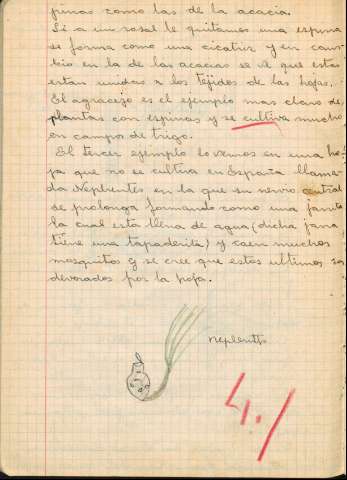 pinas como las de la acacia.
Si a un rosal le quitamos una espina
se forma como una cicatriz y en cam-
bio en la de las acacias se ve que estos
estan unidas a los tejidos de las hojas.
El agracejo es el ejemplo mas claro de
plantas con espinas y se cultiva mucho
en campos de trigo.
El tercer ejemplo lo vemos en una ho-
ja que no se cultiva en España llama-
da Neplentes en la que su nervio central
se prolonga formando como una jarrita
la cual está llena de agua (dicha jarra
tiene una tapaderita) y caen muchos
mosquitos y se cree que estos ultimos son
devorados por la hoja.
neplentes
4.